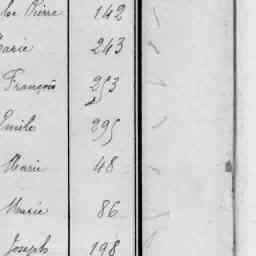 Pierre 142
Marie 243
François 253
Emile 295
Marie 48
Marie 86
Joseph 198